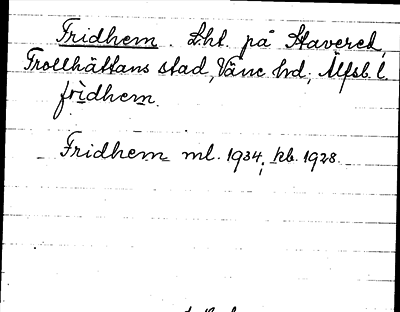 Fridhem. Lht. på Stavered,
Trollhättans stad, Väne hd, Älfsb. l.
fri̇̀dhem.
Fridhem ml. 1934; kb. 1928.